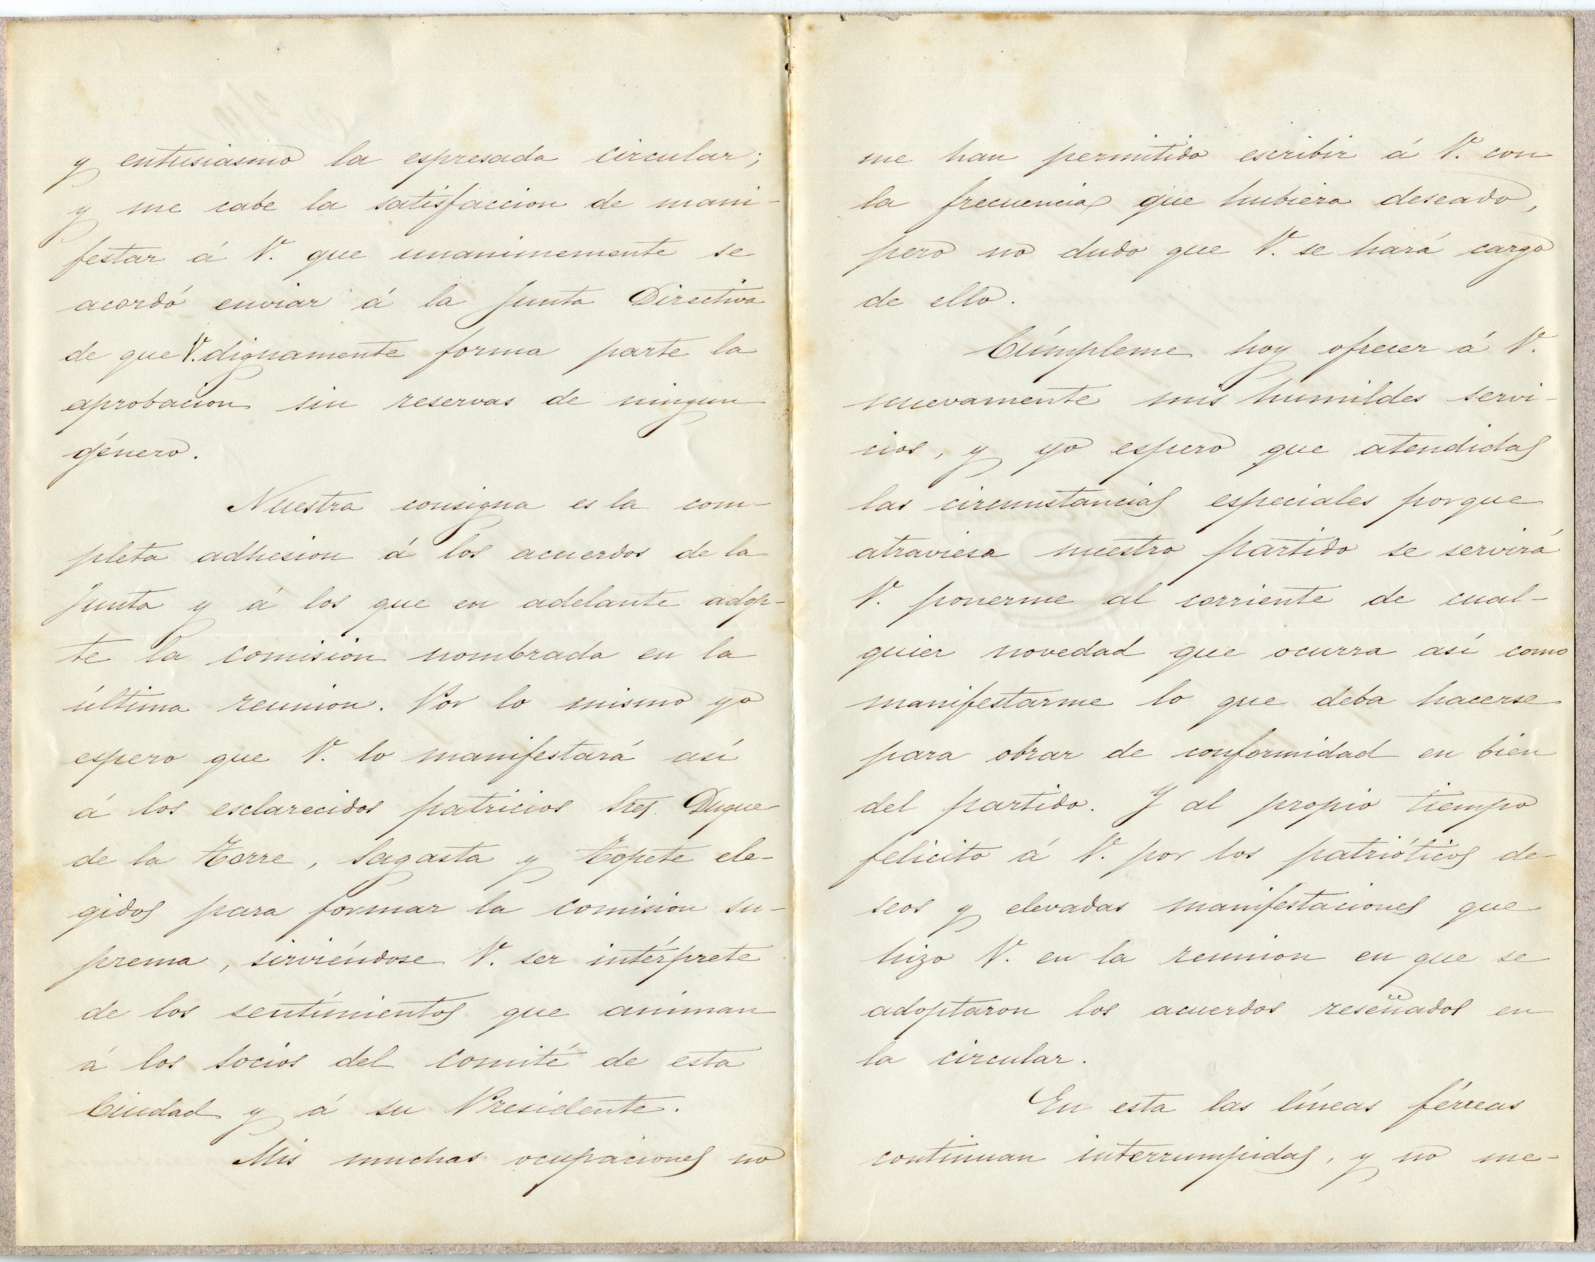 y entusiasmo la espresada circular;
y me cabe la satisfaccion de mani-
festar á V. que unanimemente se
acordó enviar á la Junta Directiva
de que V. dignamente forma parte la
aprobacion sin reservas de ningun
género.
Nuestra consigna es la com-
pleta adhesion á los acuerdos de la
Junta y á los que en adelante adop-
te la comision nombrada en la
última reunion. Por lo mismo yo
espero que V. lo manifestará así
á los esclarecidos patricios Sres Duque
de la Torre, Sagasta y Topete ele-
gidos para formar la comision su-
prema, sirviéndose V. ser intérprete
de los sentimientos que animan
á los socios del comité de esta
Ciudad y á su Presidente.
Mis muchas ocupaciones no
me han permitido escribir á V. con
la frecuencia que hubiera deseado,
pero no dudo que V. se hará cargo
de ello.
Cúmpleme hoy ofrecer á V.
nuevamente mis humildes servi-
cios, y yo espero que atendidas
las circunstancias especiales porque
atraviesa nuestro partido se servirá
V. ponerme al corriente de cual-
quier novedad que ocurra así como
manifestarme lo que deba hacerse
para obrar de conformidad en bien
del partido. Y al propio tiempo
felicito á V. por los patrióticos de-
seos y elevadas manifestaciones que
hizo V. en la reunion en que se
adoptaron los acuerdos reseñados en
la circular.
En esta las líneas férreas
continuan interrumpidas, y no me-